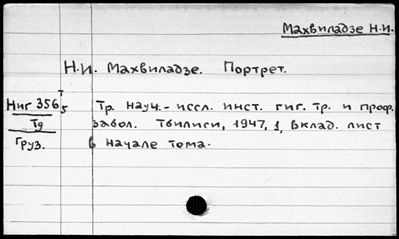 Махвиладзе Н.И.
Н.И. Махвиладзе. Портрет.
Ниг 356 т/5
Тд
Груз.
Тр. науч.-иссл. инст. гиг. тр. и проф.
забол. Тбилиси, 1947, 1, вклад. лист
в начале тома.